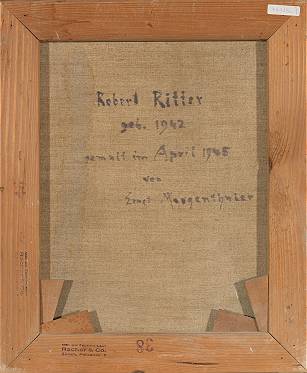 Robert Ritter
geb. 1942
gemalt im April 1945
von
Ernst Morgenthaler
Racher & Co.
38